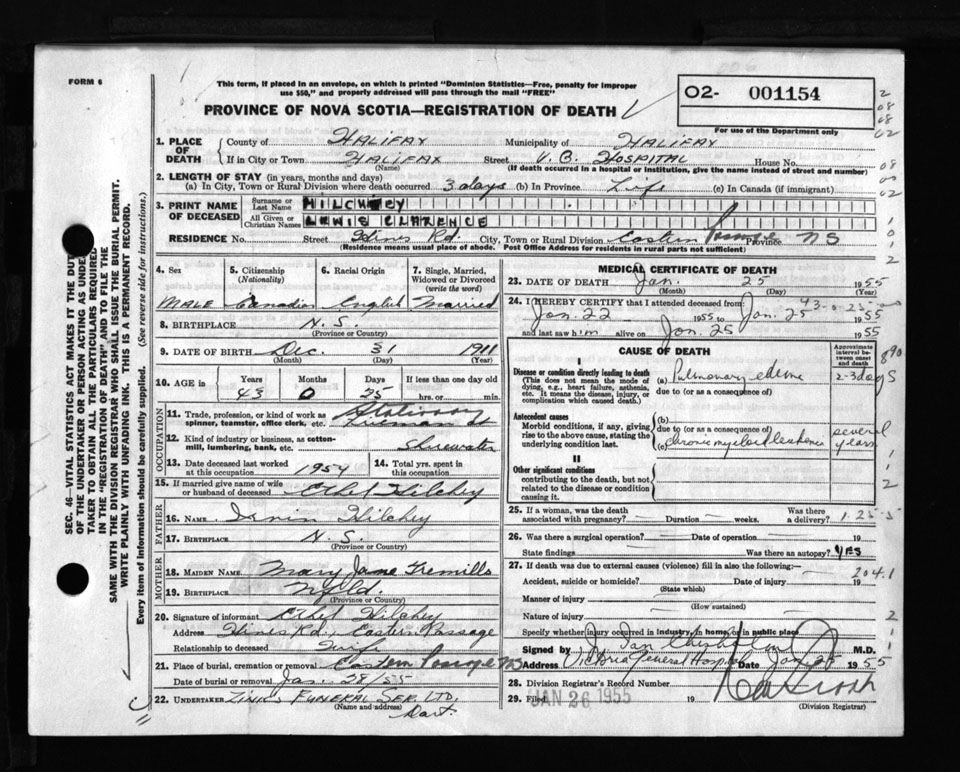 FORM 6
This form, if placed in an envelope, on which is printed "Dominion Statistics—Free, penalty for improper
use $50," and properly addressed will pass through the mail "FREE"
PROVINCE OF NOVA SCOTIA—REGISTRATION OF DEATH
02- 001154
For use of the Department only
SEC. 46 - VITAL STATISTICS ACT MAKES IT THE DUTY
OF THE UNDERTAKER OR PERSON ACTING AS UNDER-
TAKER TO OBTAIN ALL THE PARTICULARS REQUIRED
IN THE "REGISTRATION OF DEATH" AND TO FILE THE
SAME WITH THE DIVISION REGISTRAR WHO SHALL ISSUE THE BURIAL PERMIT.
WRITE PLAINLY WITH UNFADING INK. THIS IS A PERMANENT RECORD.
Every item of information should be carefully supplied. (See reverse side for instructions.)
1. PLACE OF DEATH
County of HALIFAX Municipality of HALIFAX
If in City or Town HALIFAX Street V. G. HOSPITAL House No.
(Name) (If death occurred in a hospital or institution, give the name instead of street and number)
2. LENGTH OF STAY (in years, months and days)
(a) In City, Town or Rural Division where death occurred 3 days (b) In Province Life (c) In Canada (if immigrant)
3. PRINT NAME OF DECEASED
Surname or Last Name HILCHEY
All Given or Christian Names LEWIS CLARENCE
RESIDENCE No. Street Hines Rd. City, Town or Rural Division Eastern Passage Province NS
(Residence means usual place of abode. Post Office Address for residents in rural parts not sufficient)
4. Sex
MALE
5. Citizenship
(Nationality)
Canadian
6. Racial Origin
English
7. Single, Married,
Widowed or Divorced
(write the word)
Married
8. BIRTHPLACE N.S.
(Province or Country)
9. DATE OF BIRTH Dec. 31 1911
(Month) (Day) (Year)
10. AGE in Years Months Days If less than one day old
43 0 25 hrs. or min.
OCCUPATION
11. Trade, profession, or kind of work as
spinner, teamster, office clerk, etc. Stationary
Fireman at
12. Kind of industry or business, as cotton-
mill, lumbering, bank, etc. Shearwater
13. Date deceased last worked
at this occupation 1954
14. Total yrs. spent in
this occupation
15. If married give name of wife
or husband of deceased Ethel Hilchey
FATHER
16. NAME Irvin Hilchey
17. BIRTHPLACE N.S.
(Province or Country)
MOTHER
18. MAIDEN NAME Mary Jane Tremills
19. BIRTHPLACE Nfld.
(Province or Country)
20. Signature of informant Ethel Hilchey
Address Hines Rd., Eastern Passage
Relationship to deceased Wife
21. Place of burial, cremation or removal Eastern Passage NS
Date of burial or removal Jan. 28/55
22. UNDERTAKER ZINK'S FUNERAL SER. LTD.
(Name and address)
Dart.
MEDICAL CERTIFICATE OF DEATH
23. DATE OF DEATH Jan. 25 1955
(Month) (Day) (Year)
24. I HEREBY CERTIFY that I attended deceased from
Jan. 22 1955 to Jan. 25 1955
and last saw him alive on Jan. 25 1955
CAUSE OF DEATH
Approximate
interval be-
tween onset
and death
I
Disease or condition directly leading to death
(This does not mean the mode of
dying, e.g., heart failure, asthenia,
etc. It means the disease, injury, or
complication which caused death.)
(a) Pulmonary edema 2-3 days
due to (or as a consequence of)
Antecedent causes
Morbid conditions, if any, giving
rise to the above cause, stating the
underlying condition last.
(b)
due to (or as a consequence of)
(c) Chronic myeloid leukemia several years
II
Other significant conditions
contributing to the death, but not
related to the disease or condition
causing it.
25. If a woman, was the death
associated with pregnancy? — Duration — weeks. Was there
a delivery?
1-25-5
26. Was there a surgical operation? — Date of operation — 19
State findings Was there an autopsy? YES
27. If death was due to external causes (violence) fill in also the following:
204.1
Accident, suicide or homicide? Date of injury 19
(State which)
Manner of injury
(How sustained)
Nature of injury
Specify whether injury occurred in industry, in home, or in public place
Signed by J. Ian Chisholm M.D.
Address Victoria General Hospital Date Jan 25 1955
28. Division Registrar's Record Number
29. Filed JAN 26 1955 19
(Division Registrar)